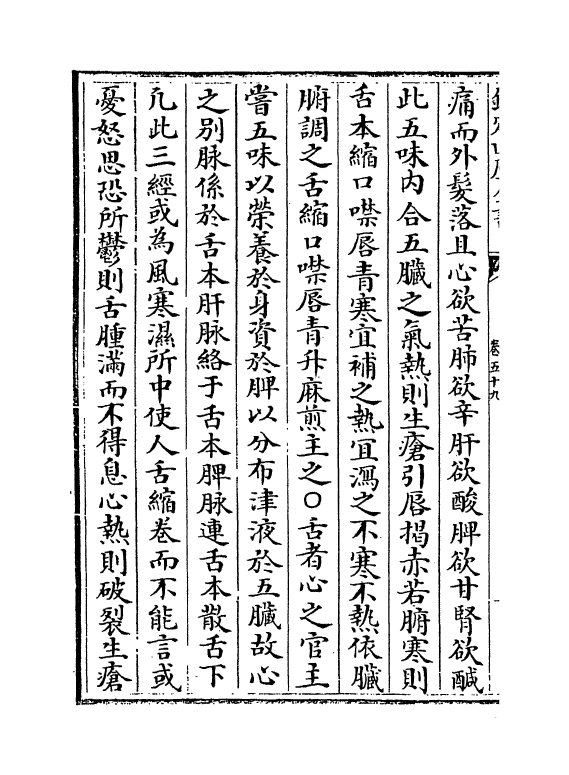 痛而外髮落且心欲苦肺欲辛肝欲酸脾欲甘腎欲鹹
此五味内合五臓之氣熱則生瘡引唇揭赤若腑寒則
舌本縮口噤唇青寒宜補之熱宜瀉之不寒不熱依臓
腑調之舌縮口噤唇青升麻煎主之○舌者心之官主
嘗五味以榮養於身資於脾以分布津液於五臓故心
之别脉係於舌本肝脉絡于舌本脾脉連舌本散舌下
凡此三經或為風寒濕所中使人舌縮卷而不能言或
憂怒思恐所鬱則舌腫滿而不得息心熱則破裂生瘡
卷五十九